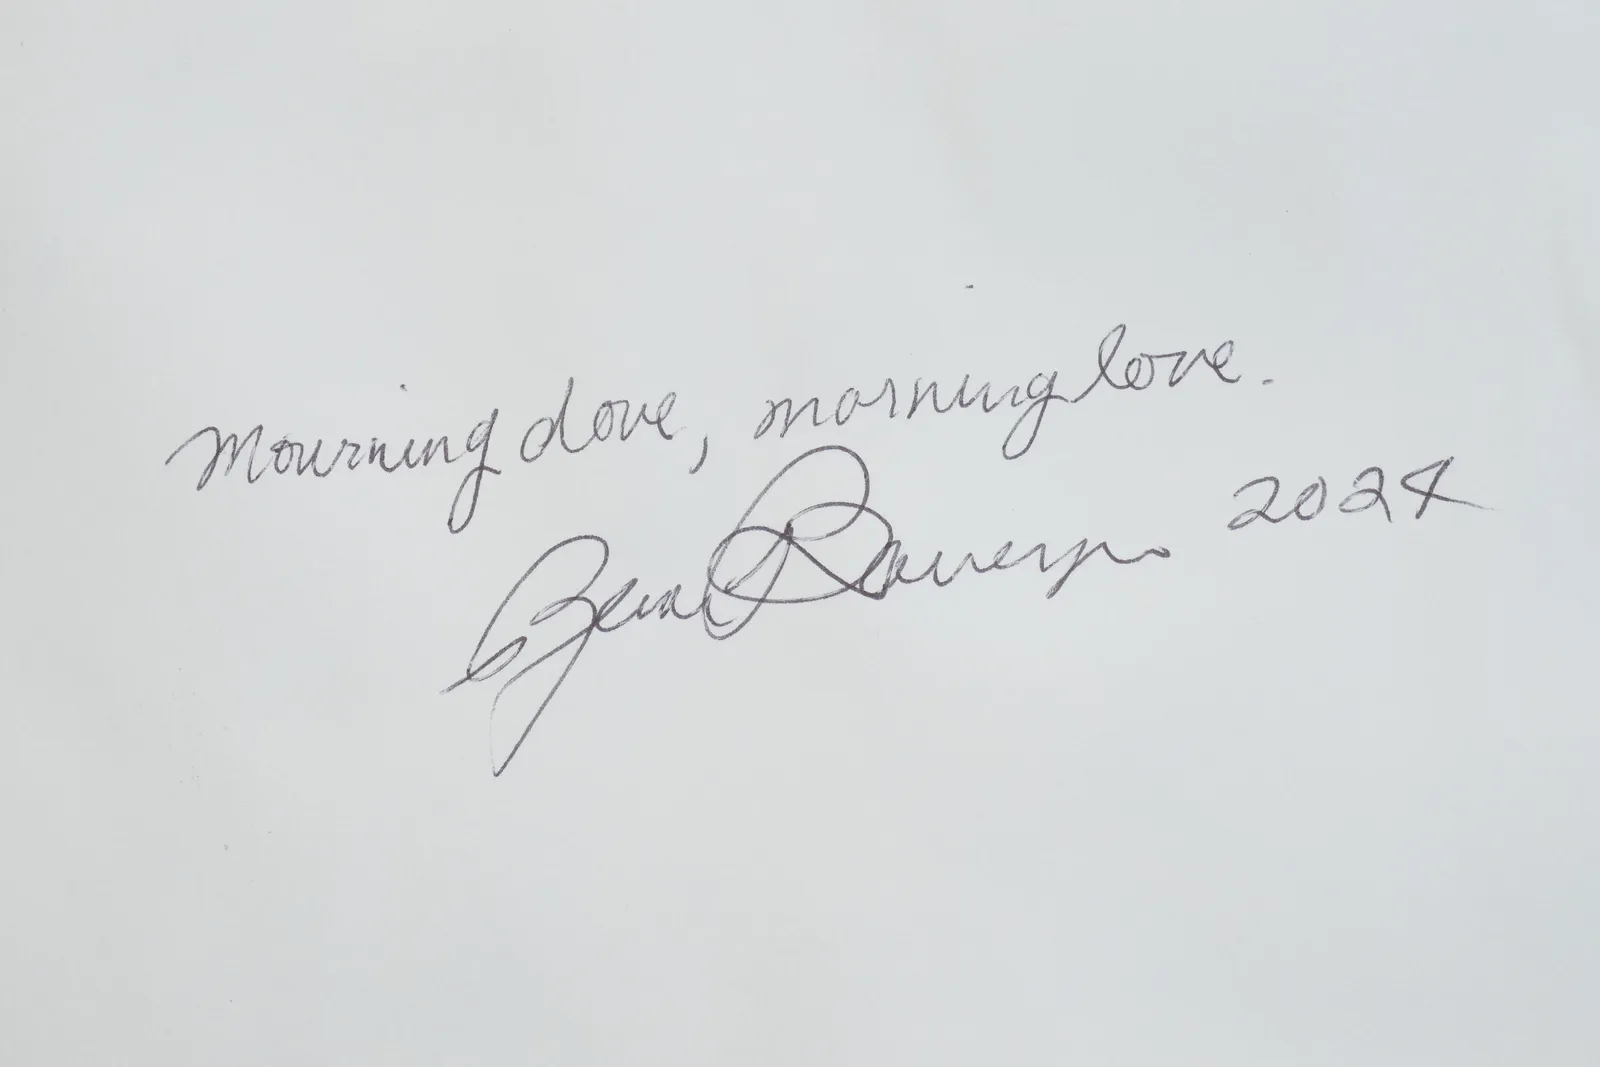 Mourning dove, morning love.
2024